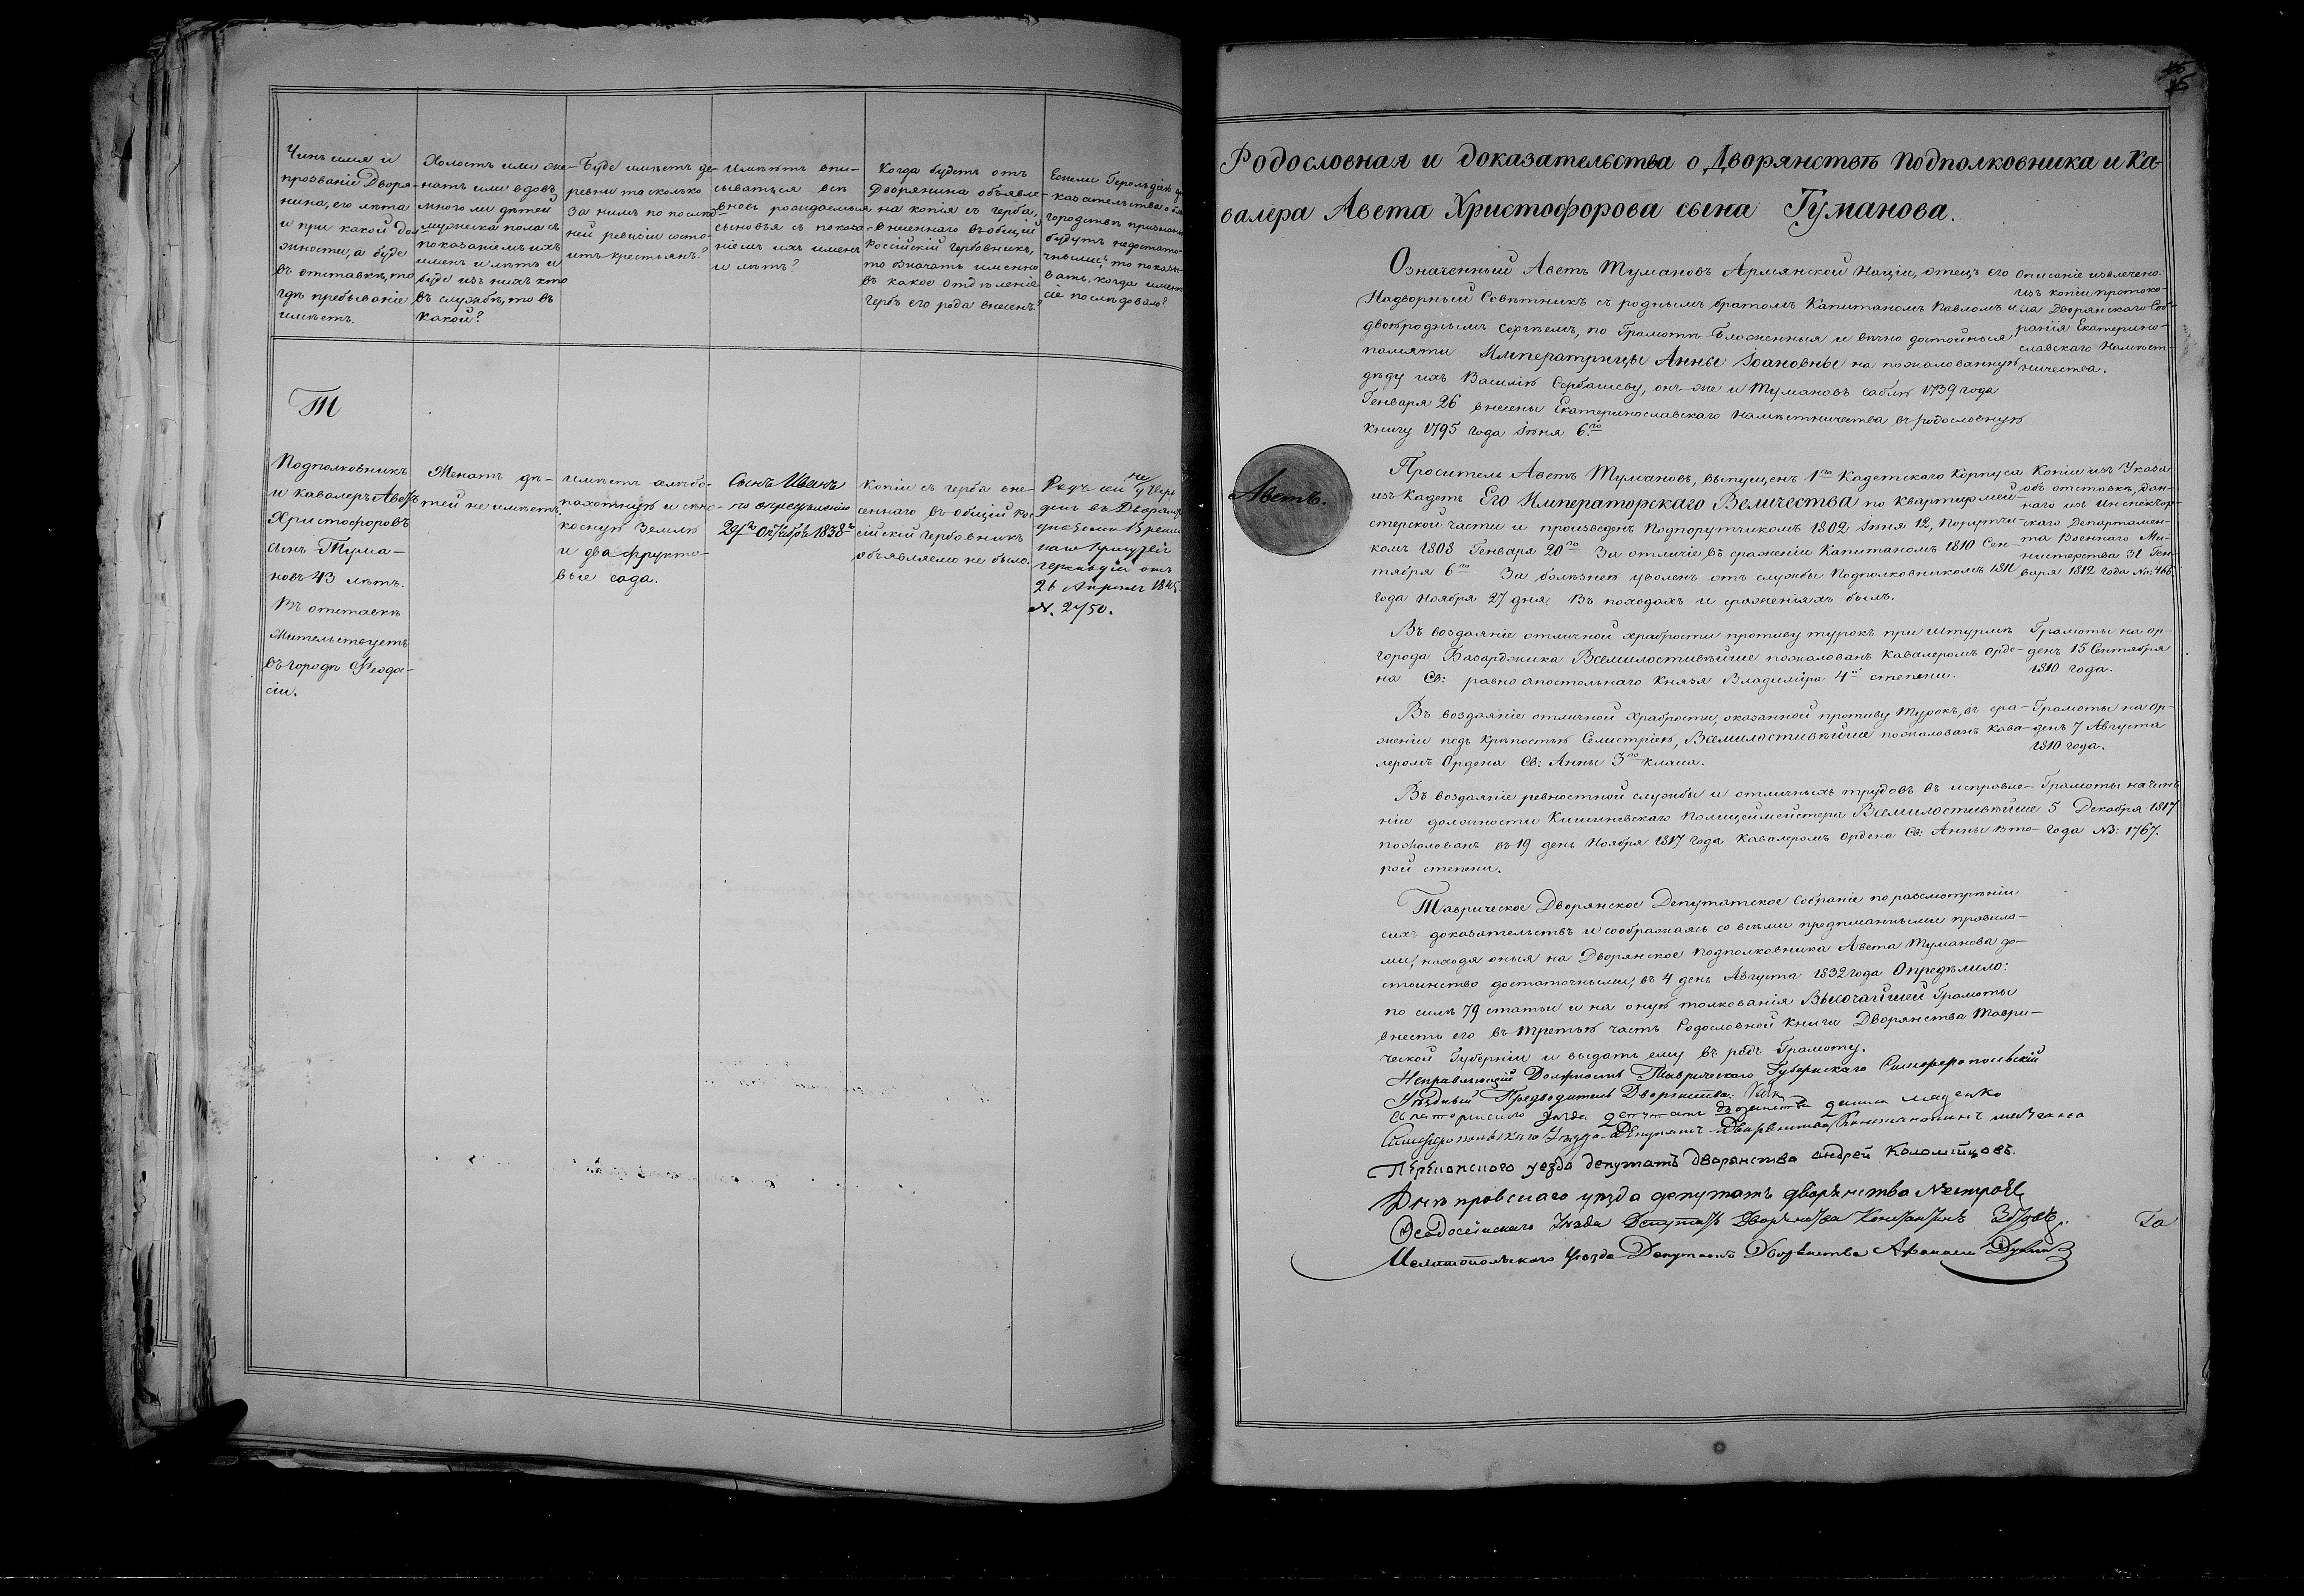 Чинъ имя и
прозваніе Дворя-
нина, его лѣта
и при какой дол
жности, а буде
въ отставкѣ, то
гдѣ пребываніе
имѣетъ.
Холостъ или же-
натъ или вдовъ
много ли дѣтей
мужеска пола съ
показаніемъ ихъ
именъ и лѣтъ и
буде изъ нихъ кто
въ службѣ, то въ
какой?
Буде имѣетъ де-
ревни то сколько
за нимъ по послѣд
ней ревизіи состо-
итъ крестьянъ?
Имѣютъ впи-
сываться всѣ
вновь рождаемыя
сыновья съ показа
ніемъ ихъ именъ
и лѣтъ?
Когда будетъ отъ
Дворянина объявле-
на копія съ герба,
внесеннаго въ общій
Россійскій Гербовникъ,
то означать именно
въ какое отдѣленіе
гербъ его рода внесенъ?
Если Герольдіею
казательства о бла
городствѣ признаны
будутъ недостато-
чными, то показы-
вать, когда именно
сіе послѣдовало?
Т
Подполковникъ
и кавалеръ Аветъ
Христофоровъ
сынъ Тума-
новъ 43 лѣтъ.
Въ отставкѣ
Жительствуетъ
въ городѣ Феодо-
сіи.
Женатъ дѣ-
тей не имѣетъ.
имѣетъ хлѣбо-
пахотную и сѣно-
косную землю
и два фрукто-
вые сада.
Сынъ Иванъ
по опредѣленію
24го Октября 1838го
Копіи съ герба вне-
сеннаго въ общій Ро-
сійскій гербовникъ
объявляемо не было.
Родъ сей не утверж
денъ въ Дворян
Герольдіи отъ
26 Апреля 1845
N. 2750.
75
Родословная и доказательства о Дворянствѣ Подполковника и Ка-
валера Авета Христофорова сына Туманова.
Означенный Аветъ Тумановъ Армянской Націи, отецъ его
Надворный Совѣтникъ съ роднымъ братомъ Капитаномъ Павломъ и
двоюроднымъ Сергѣемъ, по Грамотѣ Блаженныя и вѣчно достойныя
памяти Императрицы Анны Іоановны на пожалованную
дѣду ихъ Василію Сербашеву, онъ же и Тумановъ саблю 1739 года
Генваря 26 внесены Екатеринославскаго Намѣстничества въ родословную
книгу 1795 года Іюня 6го
Описаніе извлечено
изъ копіи протоко-
ла Дворянскаго Соб-
ранія Екатерино-
славскаго Намѣст-
ничества.
Аветъ.
Проситель Аветъ Тумановъ, выпущенъ 1го Кадетскаго Корпуса
изъ Кадетъ Его Императорскаго Величества по Квартирмей-
стерской части и произведенъ Подпорутчикомъ 1802 Іюня 12, Порутчи-
комъ 1808 Генваря 20го За отличіе въ сраженіи Капитаномъ 1810 Сен-
тября 6го За болѣзнею уволенъ отъ службы Подполковникомъ 1811
года Ноября 27 дня. Въ походахъ и сраженіяхъ былъ.
Копіи изъ Указа
объ отставкѣ, дан-
наго изъ Инспектор-
скаго Департамен-
та Военнаго Ми-
нистерства 31 Ген-
варя 1812 года No: 466.
Въ воздаяніе отличной храбрости противу турокъ при штурмѣ
города Базарджика Всемилостивѣйше пожалованъ Кавалеромъ Орде-
на Св: равно апостольнаго Князя Владиміра 4й степени.
Грамоты на ор-
денъ 15 Сентября
1810 года.
Въ воздаяніе отличной храбрости, оказанной противу Турокъ, въ сра-
женіи подъ Крѣпостью Селистріею, Всемилостивѣйше пожалованъ Кава-
леромъ Ордена Св: Анны 3го класа.
Грамоты на ор-
денъ 7 Августа
1810 года.
Въ воздаяніе ревностной службы и отличныхъ трудовъ въ исправле-
ніи должности Кишиневскаго Полицеймейстера Всемилостивѣйше
пожалованъ въ 19 день Ноября 1817 года Кавалеромъ Ордена Св: Анны вто-
рой степени.
Грамоты на чинъ
5 Декабря 1817
года No: 1767.
Таврическое Дворянское Депутатское Собраніе по разсмотрѣніи
сихъ доказательствъ и соображаясь со всѣми предписанными правила-
ми, находя оныя на Дворянское Подполковника Авета Туманова до-
стоинство достаточными, въ 4 день Августа 1832 года Опредѣлило:
по силѣ 79 статьи и на оную толкованія Высочайшей Грамоты
внесть его въ третью часть Родословной книги Дворянства Таври-
ческой Губерніи и выдать ему въ родъ Грамоту.
Исправляющій Должность Таврическаго Губернскаго Симферопольскій
Уѣздный Предводитель Дворянства:
уѣзда депутатъ дворянства
Симферопольскаго Уѣзда Депутатъ Дворянства Константинъ
Перекопского уезда депутатъ дворянства андрей Коломійцовъ.
Днѣпровскаго уѣзда депутатъ дворянства
Феодосійскаго Уѣзда Депутатъ Дворянства Константинъ
Мелитопольскаго Уѣзда Депутатъ Дворянства
Та